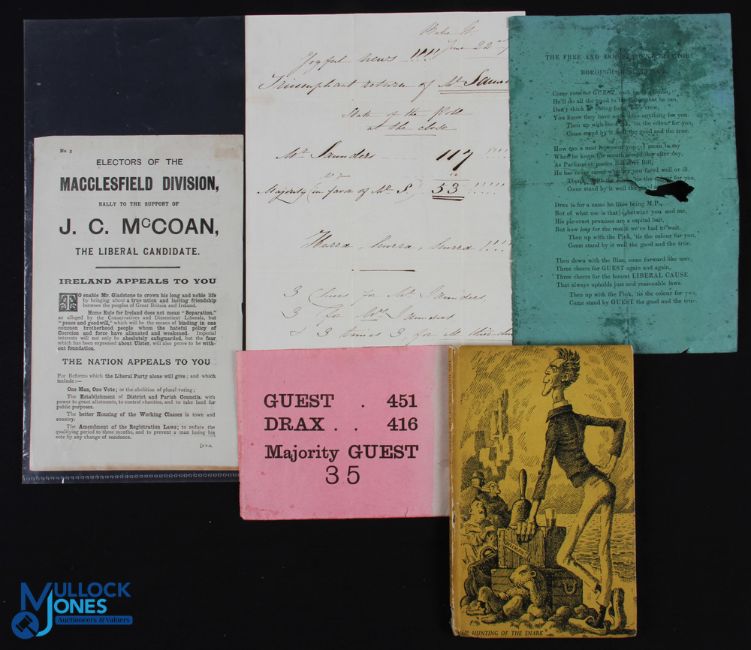 No 3
ELECTORS OF THE
MACCLESFIELD DIVISION,
RALLY TO THE SUPPORT OF
J. C. McCOAN,
THE LIBERAL CANDIDATE.
IRELAND APPEALS TO YOU
To enable Mr. Gladstone to crown his long and noble life
by bringing about a true union and lasting friendship
between the peoples of Great Britain and Ireland.
Home Rule for Ireland does not mean "Separation,"
as alleged by the Conservatives and Dissentient Liberals, but
"peace and goodwill," which will be the means of binding in one
common brotherhood people whom the hateful policy of
Coercion and force have alienated and weakened. Imperial
interests will not only be absolutely safeguarded, but the fear
which has been expressed about Ulster, will also prove to be with-
out foundation.
THE NATION APPEALS TO YOU
For Reforms which the Liberal Party alone will give; and which
include:—
One Man, One Vote; or the abolition of plural voting;
The Establishment of District and Parish Councils, with
power to grant allotments, to control charities, and to take land for
public purposes.
The better Housing of the Working Classes in town and
country.
The Amendment of the Registration Laws; to reduce the
qualifying period to three months, and to prevent a man losing his
vote by any change of residence.
June 22nd
Joyful news !!!!
Triumphant return of Mr Saunders
State of the Poll
at the close
Mr. Saunders 117 !!!!
Majority (in favor of Mr S.) 53 !!!!!
Hurra, hurra, hurra !!!!
3 Cheers for Mr Saunders
3 for Mrs Saunders
THE FREE AND
BOROUGH
Come vote for GUEST,
He'll do all the good
Then up with the Pink, 'tis the colour for you,
Come stand by it well the good and the true.
When he keeps the mouth
As Parliament
Come stand by it well the good and the true.
Drax is for a name he likes being M.P.,
But of what use is that between you and me,
His pleasant promises are a capital bait,
But how long for the result we've had to wait.
Then up with the Pink, 'tis the colour for you,
Come stand by it well the good and the true.
Then down with the Blue, come forward like men,
Three cheers for GUEST again and again,
Three cheers for the honest LIBERAL CAUSE
That always upholds just and reasonable laws.
Then up with the Pink, 'tis the colour for you,
Come stand by GUEST the good and the true.
GUEST . 451
DRAX . . 416
Majority GUEST
35
HUNTING OF THE SNARK
MULLOCK
JONES
Auctioneers & Valuers